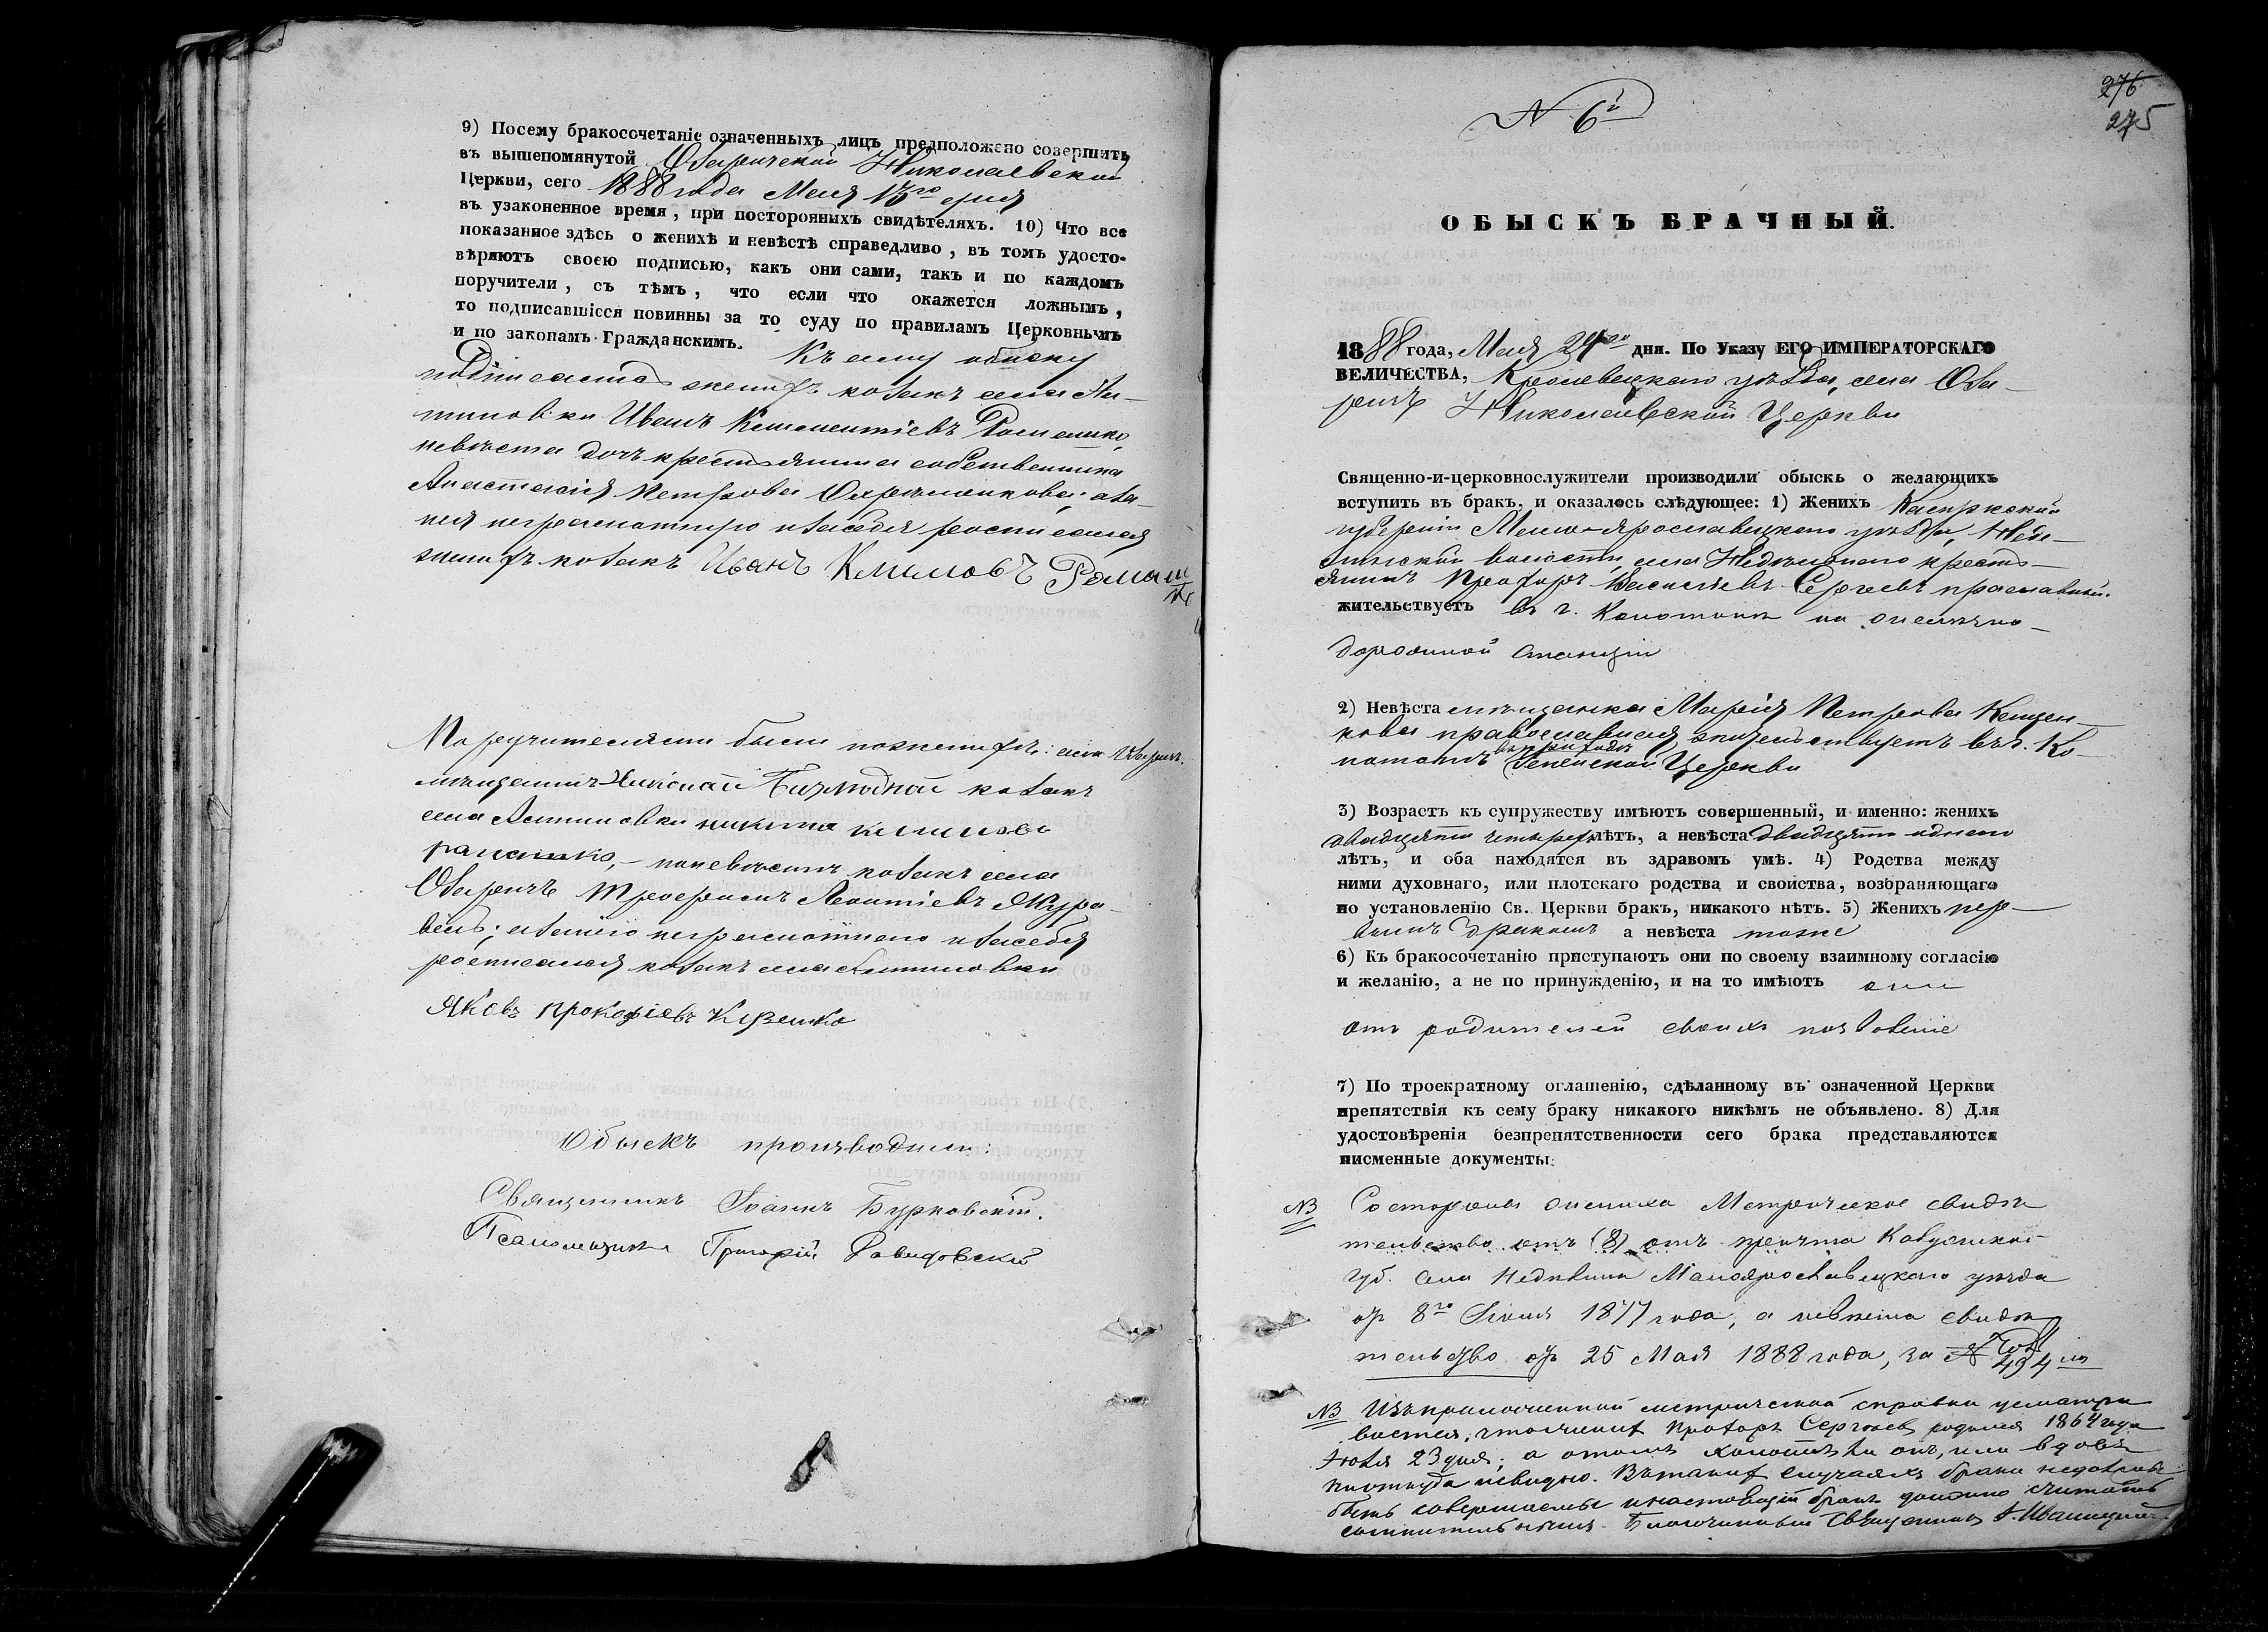 9) Посему бракосочетаніе означенныхъ лицъ предположено совершить
въ вышепомянутой Обтричской Николаевской
Церкви, сего 1888 года Мая дня
въ узаконенное время, при постороннихъ свидѣтеляхъ. 10) Что все
показанное здѣсь о женихѣ и невѣстѣ справедливо, въ томъ удосто-
вѣряютъ своею подписью, какъ они сами, такъ и по каждомъ
поручители, съ тѣмъ, что если что окажется ложнымъ,
то подписавшіеся повинны за то суду по правиламъ Церковнымъ
и по законамъ Гражданскимъ. Къ сему обыску
женихъ козакъ села
Иванъ Климентіевъ
невѣста дочь крестьянина собственника
Анастасія Петрова
неграмотную и за себя росписался
женихъ козакъ Иванъ Климовъ Ромаш
Поручителями были по женихѣ: села
мѣщанинъ Николай козакъ
села никита климовъ
по невѣстѣ козакъ села
Леонтіевъ Жура-
вель; неграмотнаго и за себя
росписался козакъ села
Яковъ прокофіевъ
Обыскъ производили:
Священникъ Іоаннъ Бурковскій.
Псаломщикъ Григорій Давидовскій
№ 6й
276
275
ОБЫСКЪ БРАЧНЫЙ.
1888 года, Мая 29го дня. По Указу ЕГО ИМПЕРАТОРСКАГО
ВЕЛИЧЕСТВА, Кролевецкаго уѣзда, села
Николаевской Церкви
Священно-и-церковнослужители производили обыскъ о желающихъ
вступить въ бракъ, и оказалось слѣдующее: 1) Женихъ Калужской
губерніи Мало-Ярославецкаго уѣзда, Неде-
линской волости, села Недѣльнаго кресть-
янинъ Проторъ Васильевъ Сергѣевъ православный.
жительствуетъ въ г. Конотопѣ на желѣзно-
дорожной станціи
2) Невѣста мѣщанка Марія Петрова
православная, жительствуетъ въ г. Ко-
нотопѣ въ приходѣ Успенской Церкви
3) Возрастъ къ супружеству имѣютъ совершенный, и именно: женихъ
двадцати четырехъ лѣтъ, а невѣста двадцати одного
лѣтъ, и оба находятся въ здравомъ умѣ. 4) Родства между
ними духовнаго, или плотскаго родства и свойства, возбраняющаго
по установленію Св. Церкви бракъ, никакого нѣтъ. 5) Женихъ пер-
вымъ бракомъ а невѣста тоже
6) Къ бракосочетанію приступаютъ они по своему взаимному согласію
и желанію, а не по принужденію, и на то имѣютъ они
отъ родителей своихъ позволеніе
7) По троекратному оглашенію, сдѣланному въ означенной Церкви
препятствія къ сему браку никакого никѣмъ не объявлено. 8) Для
удостовѣренія безпрепятственности сего брака представляются
писменные документы:
NB Со стороны жениха Метрическое свидѣ
тельство отъ (8) отъ причта Калужской
губ. села Недѣльна Малоярославецкаго уѣзда
отъ 8го Іюня 1877 года, а невѣста свидѣ
тельство отъ 25 Мая 1888 года, за № 494
NB Изъ приложенной метрической справки усматри
вается, что женихъ Проторъ Сергѣевъ родился 1864 года
Іюля 23 дня; а о томъ холостъ ли онъ, или вдовъ
ниоткуда невидно. Въ такихъ случаяхъ браки недолжны
быть совершаемы и настоящій бракъ должно считать
сомнительнымъ. Благочинный Священникъ